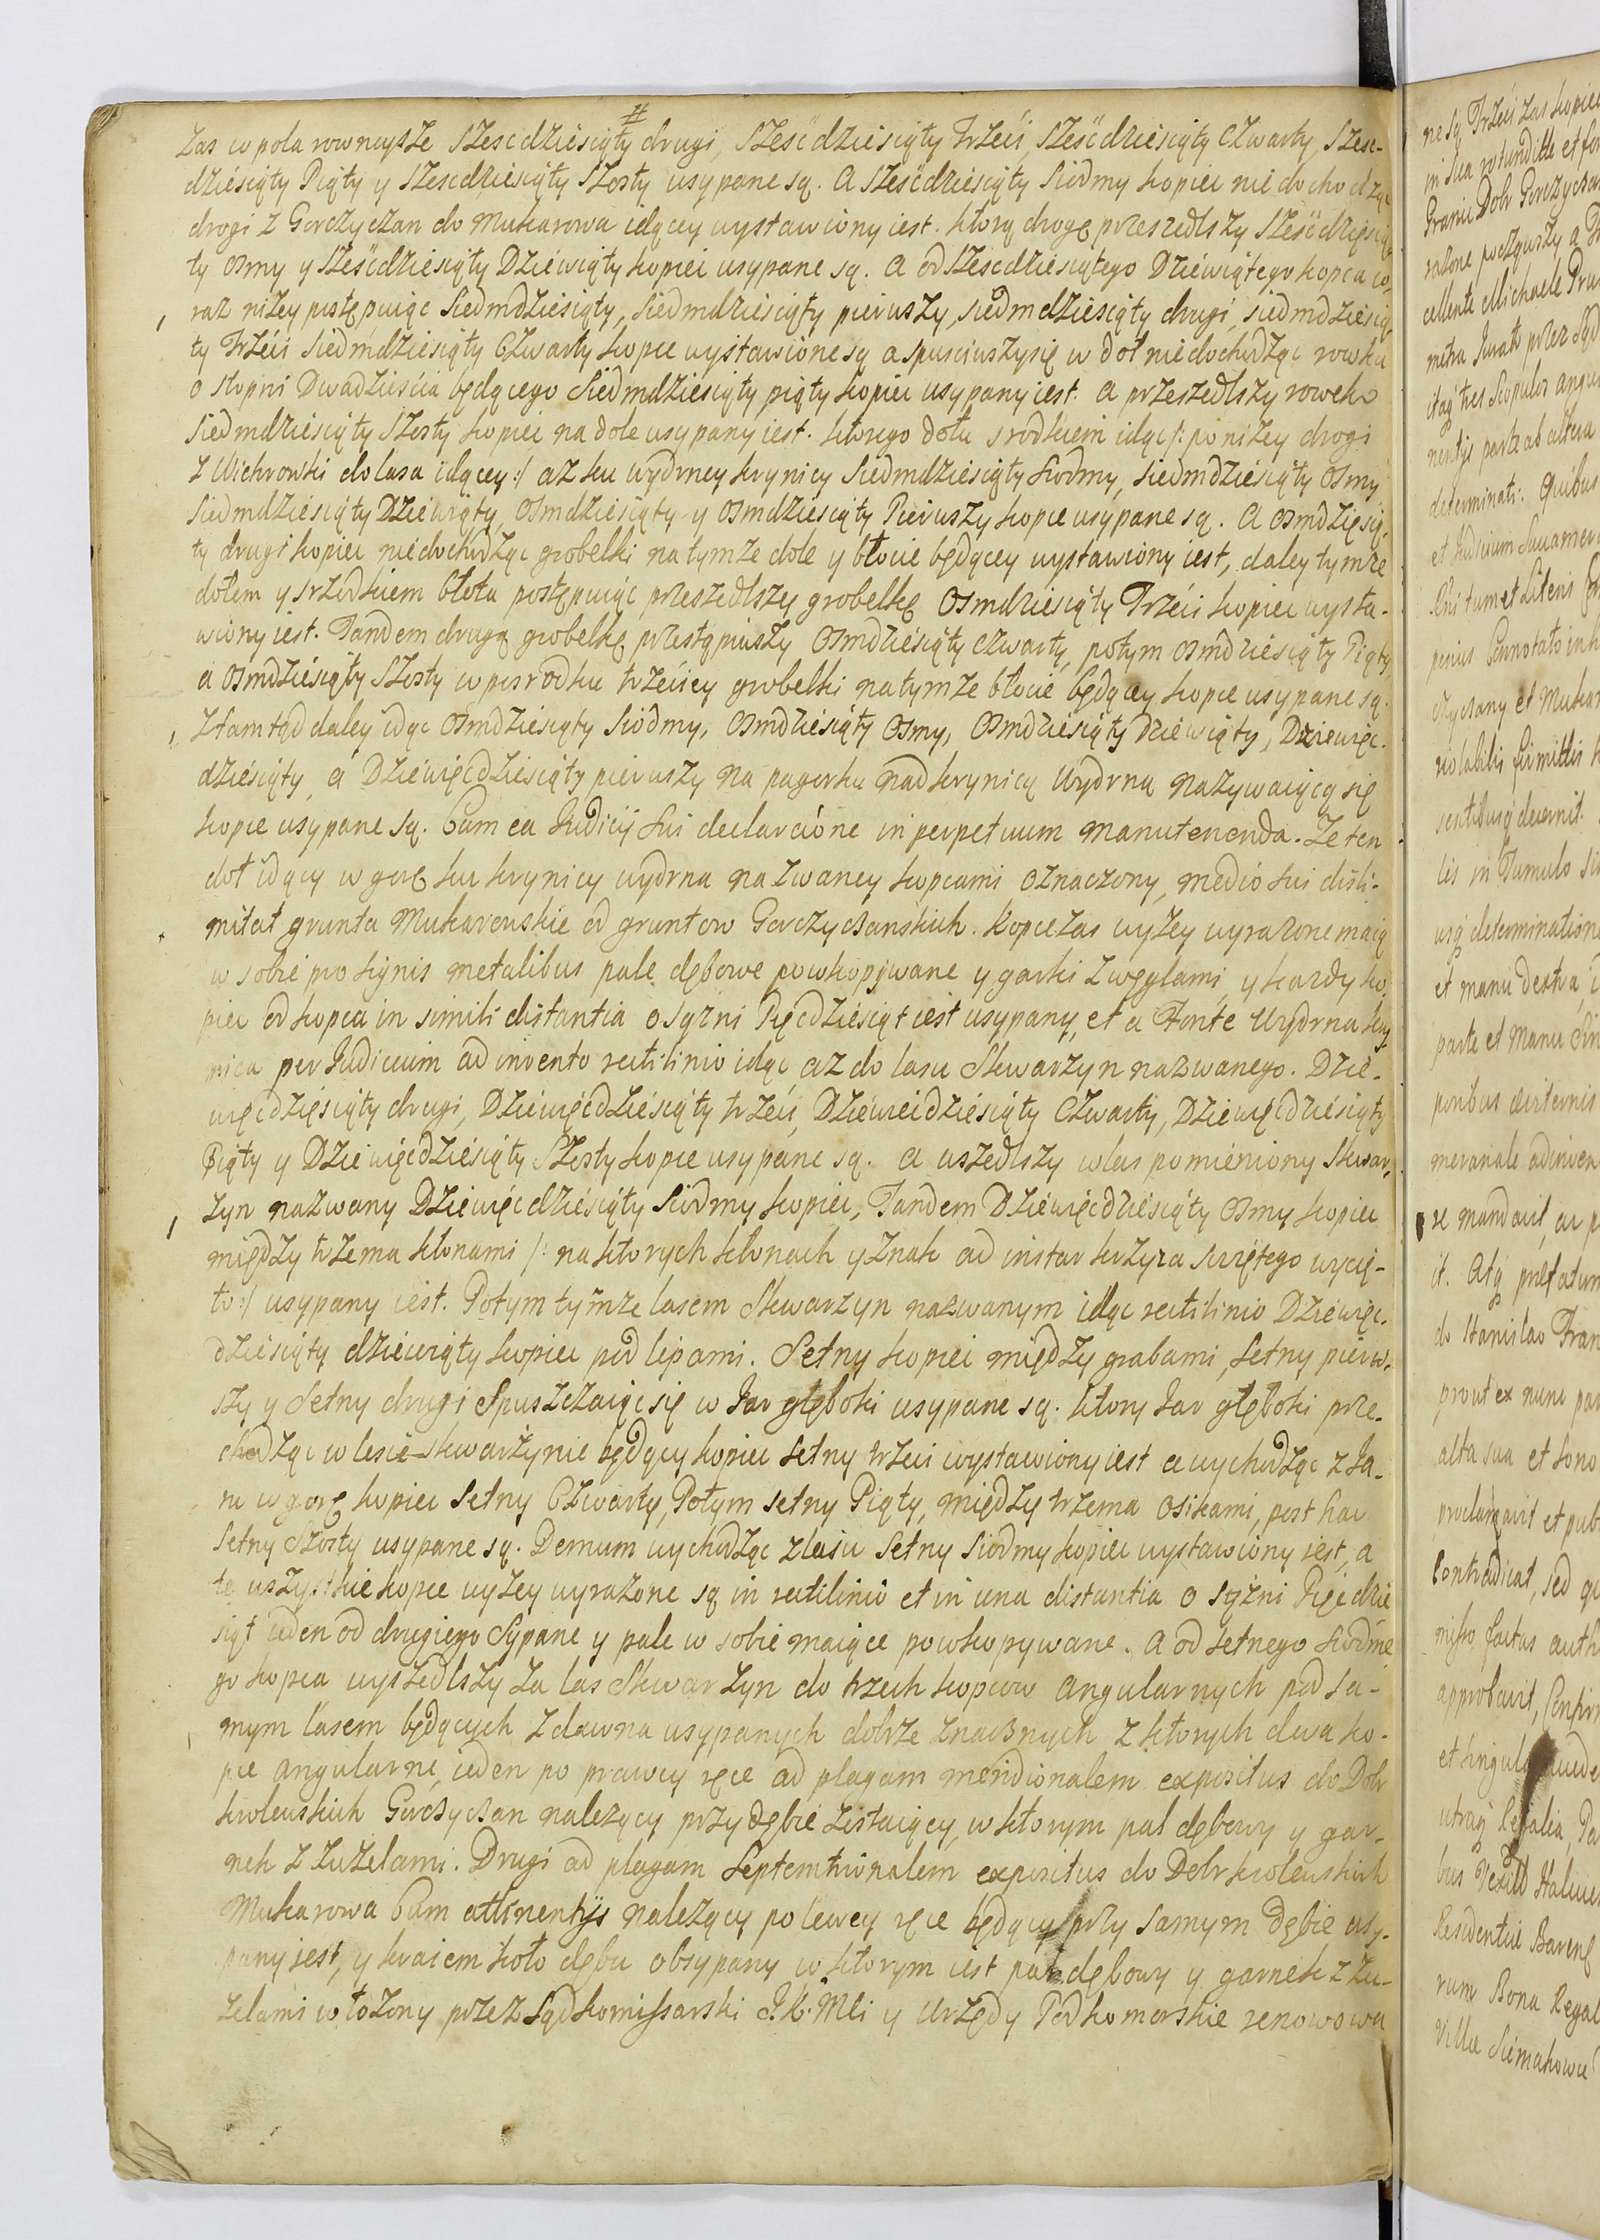 zas w pola rownieysze szescdziesiąty drugi, szescdziesiąty trzeci, szescdziesiąty czwarty, szesc-
dziesiąty Piąty y szescdziesiąty szosty usypane są. A szescdziesiąty siodmy kopiec nie dochodząc
drogi z Gorczyczan do Mukarowa idącey wystawiony iest. ktorą drogę przeszedłszy szescdziesią-
ty osmy y szescdziesiąty Dziewiąty kopiec usypane są. A od szescdziesiątego Dziewiątego kopca co
raz niżey postępuiąc siedmdziesiąty, siedmdziesiąty pierwszy, siedmdziesiąty drugi, siedmdziesią-
ty trzeci siedmdziesiąty Czwarty kopce wystawione są a spusciwszysię w doł niedochodząc rowka
o stopni Dwadziescia będącego siedmdziesiąty piąty kopiec usypany iest. A przeszedłszy rowek
siedmdziesiąty szosty kopiec na dole usypany iest. ktorego dołu srodkiem idąc /: poniżey drogi
z Michrowki do lasa idącey :/ aż ku wydrney krynicy siedmdziesiąty siodmy, siedmdziesiąty osmy
siedmdziesiąty Dziewiąty, osmdziesiąty y osmdziesiąty Pierwszy kopce usypane są. A osmdziesią-
ty drugi kopiec niedochodząc grobelki na tymże dole y błocie będącey wystawiony iest, daley tymże
dołem y srzodkiem błota postępuiąc przeszedłszy grobelkę osmdziesiąty Trzeci kopiec wysta-
wiony iest. Tandem drugą grobelkę przestąpiwszy osmdziesiąty czwarty, potym osmdziesiąty Piąty,
a osmdziesiąty szosty w posrodku trzeciey grobelki na tymże błocie będącey kopce usypane są.
ztamtąd daley idąc osmdziesiąty siodmy, osmdziesiąty osmy, osmdziesiąty dziewiąty, Dziewięc-
dziesiąty, a Dziewięcdziesiąty pierwszy na pagorku nad krynicą Wydrna nazywaiącą się
kopce usypane są. Cum ea Judicij sui declaratione in perpetuum manutenenda. Że ten
doł idący w gorę ku krynicy wydrna nazwaney kopcami oznaczony, medio sui disli-
mitat grunta Mukarowskie od gruntow Gorczyczanskich. Kopce zas wyżey wyrażone maią
w sobie pro signis metalibus pale dębowe powkopywane y garki z węglami, y każdy ko-
piec od kopca in simili distantia o sążni Pięcdziesiąt iest usypany, et a Fonte Wydrna kry-
nica per Judicium ad invento rectilinio idąc, aż do lasu Skwarzyn nazwanego. Dzie-
więcdziesiąty drugi, Dziewięcdziesiąty trzeci, Dziewięcdziesiąty Czwarty, Dziewięcdziesiąty
Piąty y Dziewięcdziesiąty Szosty kopce usypane są. A wszedłszy w las pomieniony Skwar-
zyn nazwany Dziewięcdziesiąty siodmy kopiec, Tandem Dziewięcdziesiąty osmy kopiec
między trzema klonami /: na ktorych klonach y znak ad instar krzyża swiętego wycię-
to :/ usypany iest. Potym tymże lasem Skwarzyn nazwanym idąc rectilinio Dziewięc-
dziesiąty dziewiąty kopiec pod lipami. Setny kopiec między grabami, setny pierw-
szy y setny drugi spuszczaiąc się w Jar głęboki usypane są. ktory Jar głęboki prze-
chodząc w lesie Skwarzynie będący kopiec setny trzeci wystawiony iest a wychodząc z Ja-
ru w gorę kopiec setny Czwarty, Potym setny Piąty, między trzema osikami, post hac
setny szosty usypane są. Demum wychodząc z lasu setny siodmy kopiec wystawiony iest, a
te wszystkie kopce wyżey wyrażone są in rectilinio et in una distantia o sążni Pięcdzie
siąt ieden od drugiego sypane y pale w sobie maiące powkopywane. A od setnego siodme
go kopca wyszedłszy za las Skwarzyn do trzech kopcow angularnych pod sa-
mym lasem będących z dawna usypanych dobrze znacznych z ktorych dwa ko-
pce angularne, ieden po prawey ręce ad plagam meridionalem expositus do Dobr
krolewskich Gorczyczan należący przy dębie zostaiący, w ktorym pal dębowy y gar-
nek z zużelami. Drugi ad plagam Septemtrionalem expositus do Dobr krolewskich
Mukarowa Cum attinentijs należący po lewey ręce będący przy samym dębie usy-
pany iest, y kraiem koło dębu obsypany w ktorym iest pal dębowy y garnek z zu-
żelami włożony przez Sąd komissarski J.K.Mci y Urzędy Podkomorskie renowowa
ne są Trzeci zas kopiec
in sua rotunditate et
Granic Dobr Gorczyczan
rażone począwszy a
cellente Michaele
przez Sąd
tres scopulos
parte ab altera
determinati. Quibus
et Judicium
tum et Literis
Annotato in
et Mukar
firmiter
decernit.
in Tumulo
determinatione
et manu dextra,
parte et manu
mandavit, ac
it. Atq prefatum
Stanislao Fran
prout ex nunc par
alta sua et sono
proclamavit et pub
Contradicat, sed
factus auth
approbavit,
et singula
Regalia,
Residentie Barene
rum Bona Regal
Ville Siemakowce